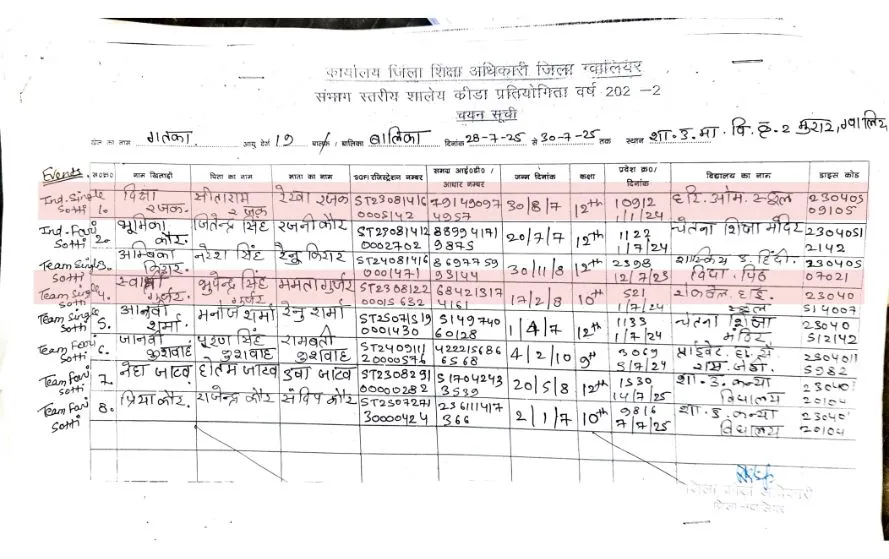 कार्यालय जिला शिक्षा अधिकारी जिला ग्वालियर
संभाग स्तरीय शालेय क्रीडा प्रतियोगिता वर्ष 202 -2
चयन सूची
खेल का नाम गतका आयु वर्ग 19 बालक / बालिका बालिका दिनांक 28-7-25 से 30-7-25 तक स्थान शा. उ. मा. वि. क्र. 2 मुरार, ग्वालियर
Events स०क्र० नाम खिलाडी पिता का नाम माता का नाम SGFI रजिस्ट्रेशन नम्बर समग्र आई०डी० / आधार नम्बर जन्म दिनांक कक्षा प्रवेश क्र0/ दिनांक विद्यालय का नाम डाइस कोड
Ind. Single Sotti 1. रजक. सीताराम रजक रेखा रजक ST23081416 0005142 791490974957 30/8/7 12th 10912 1/1/24 हरि. ओम. स्कूल 230405 09105
Ind. Fari Sotti 2. भूमिका कौर. जितेन्द्र सिंह रजनी कौर ST23081412 0002702 869941719875 20/7/7 12th 1122 1/7/24 चेतना शिक्षा मंदिर 2304051 2142
Team Single Sotti 3. अम्बिका किरार. नरेश सिंह रैनु किरार ST24081416 0001471 869775993144 30/11/8 12th 2398 12/7/23 शास्कीय उ. हिंदी. विद्या. पिठ 230405 07021
Team Single Sotti 4. गुर्जर. भुपेन्द्र सिंह गुर्जर ममता गुर्जर ST2308122 00015632 684213174161 17/2/8 10th 521 1/7/24 स्कूल 23040 514007
Team Single Sotti 5. आनवी शर्मा. मनोज शर्मा रेनु शर्मा ST25071519 0001430 514974060128 1/4/7 12th 1133 1/7/24 चेतना शिक्षा मंदिर 23040 512142
Team Fari Sotti 6. जानवी कुशवाह पूरण सिंह कुशवाह रामवती कुशवाह ST240911 20000576 422215686 6568 4/2/10 9th 3069 5/7/24 2304011 5982
Team Fari Sotti 7. नेहा जाटव होतम जाटव जाटव ST2308291 00000282 51704243 3539 20/5/8 12th 1530 14/7/25 शा. उ. कन्या विद्यालय 23040 20104
Team Fari Sotti 8. प्रिया कौर. राजेन्द्र कौर संदिप कौर ST2507271 30000424 236111417 366 2/1/7 10th 9816 7/7/25 शा. उ. कन्या विद्यालय 23040 20104